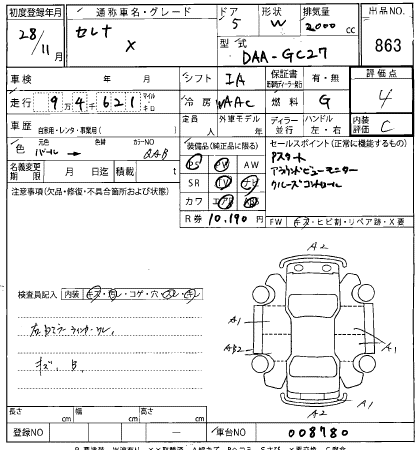 初度登録年月 通称車名・グレード ドア 形状 排気量 出品NO
28/11月 セレナ X 5 W 2000 cc 863
型式 DAA-GC27
車検 年 月 シフト IA 保証書 有・無 評価点
走行 9万4千621 マイル キロ 冷房 AAC 燃料 G 4
車歴 自家用・レンタ・事業用( ) 定員 人 外車モデル 年 ディーラー 並行 ハンドル 左・右 内装評価 C
色 元色 パール→ 色替 カラーNO QAB
装備品(純正品に限る) セールスポイント(正常に機能するもの)
PS PW AW アスタート
SR TV ナビ アラウンドビューモニター
カワ エアB クルーズコントロール
名義変更期限 月 日迄 積載 t
R券 10,190 円
注意事項(欠品・修復・不具合箇所および状態)
FW キズ・ヒビ割・リペア跡・X要
検査員記入 内装 キズ・ヨゴレ・コゲ・穴・スレ・キレ
A2
A1
AB2
A1
A2
A1
キズ、B
長さ cm 幅 cm 高さ cm
登録NO 車台NO 008780